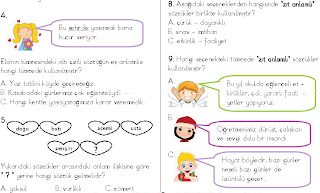 4.
Bu şehirde yaşamak bana
huzur veriyor.
Ela'nın tümcesindeki altı çizili sözcüğün eş anlamlısı
hangi tümcede kullanılmıştır?
A. Yaz tatilini köyde geçireceğiz.
B. Kasabadaki günlerimiz çok eğlenceliydi.
C. Hangi kentte yaşayacağımıza karar veremedik.
5.
doğu
batı
acemi
usta
zengin
?
Yukarıdaki sözcükler arasındaki anlam ilişkisine göre
" ? " yerine hangi sözcük gelmelidir?
A. yoksul B. varlıklı C. cömert
8. Aşağıdaki seçeneklerden hangisinde "zıt anlamlı"
sözcükler birlikte kullanılmıştır?
A. çürük - dayanıklı
B. sınav - imtihan
C. etkinlik - faaliyet
9. Hangi seçenekteki tümcede "zıt anlamlı" sözcükler
kullanılmıştır?
A.
Bu yıl okulda eğlenceli et -
kinlikler, çok yararlı faali -
yetler yapıyoruz.
B.
Öğretmenimiz dürüst, çalışkan
ve sevgi dolu bir insandı.
C.
Hayat böyledir, bazı günler
neşeli bazı günler de
üzüntülü geçer.